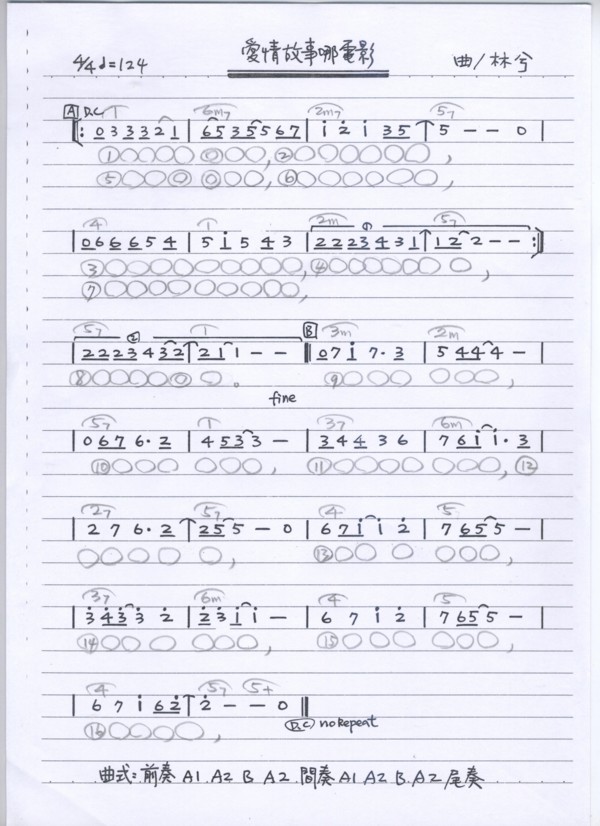 愛情故事哪電影
4/4 ♩=124
曲/林兮
A D.C 1 6m7 2m7 5₇
‖: 0 3 3 3 2 1 | 6 5 3 5 5 6 7 | i 2̇ i 3 5 ↑ 5 — — 0 |
①○○○○ ○○○, ②○○○○○○○,
⑤○○○ ○○○, ⑥○○○○○○○,
4 1 2m ① 5₇
| 0 6 6 6 6 5 4 | 5 i 5 4 3 | 2 2 2 3 4 3 1 ↑ 1 2 2 — — :‖
③○○○○○○○○○, ④○○○○○ ○,
⑦○○○○○○○○○,
5₇ ② 1 B 3m 2m
| 2 2 2 3 4 3 2 ↑ 2 1 1 — — ‖ 0 7 i 7· 3 | 5 4 4 4 — |
⑧○○○○○ ○。 ⑨○○○ ○○○,
fine
5₇ 1 3₇ 6m
| 0 6 7 6· 2 | 4 5 3 3 — | 3 4 4 3 6 | 7 6 i i· 3 |
⑩○○○ ○○○, ⑪○○○○ ○○○, ⑫
2₇ 5₇ 4 5
| 2 7 6· 2 ↑ 2 5 5 — 0 | 6 7 i i 2̇ | 7 6 5 5 — |
○○○○ ○, ⑬○○ ○ ○○○,
3₇ 6m 4 5
| 3̇ 4̇ 3̇ 3̇ 2̇ | 2̇ 3̇ i i — | 6 7 i 2̇ | 7 6 5 5 — |
⑭○○ ○ ○○○, ⑮○○○ ○○○,
4 5₇ 5+
| 6 7 i 6 2̇ ↑ 2̇ — — 0 ‖
⑯○○○○,
D.C no Repeat
曲式:前奏 A1 . A2 B A2 . 間奏 A1 A2 B . A2 尾奏